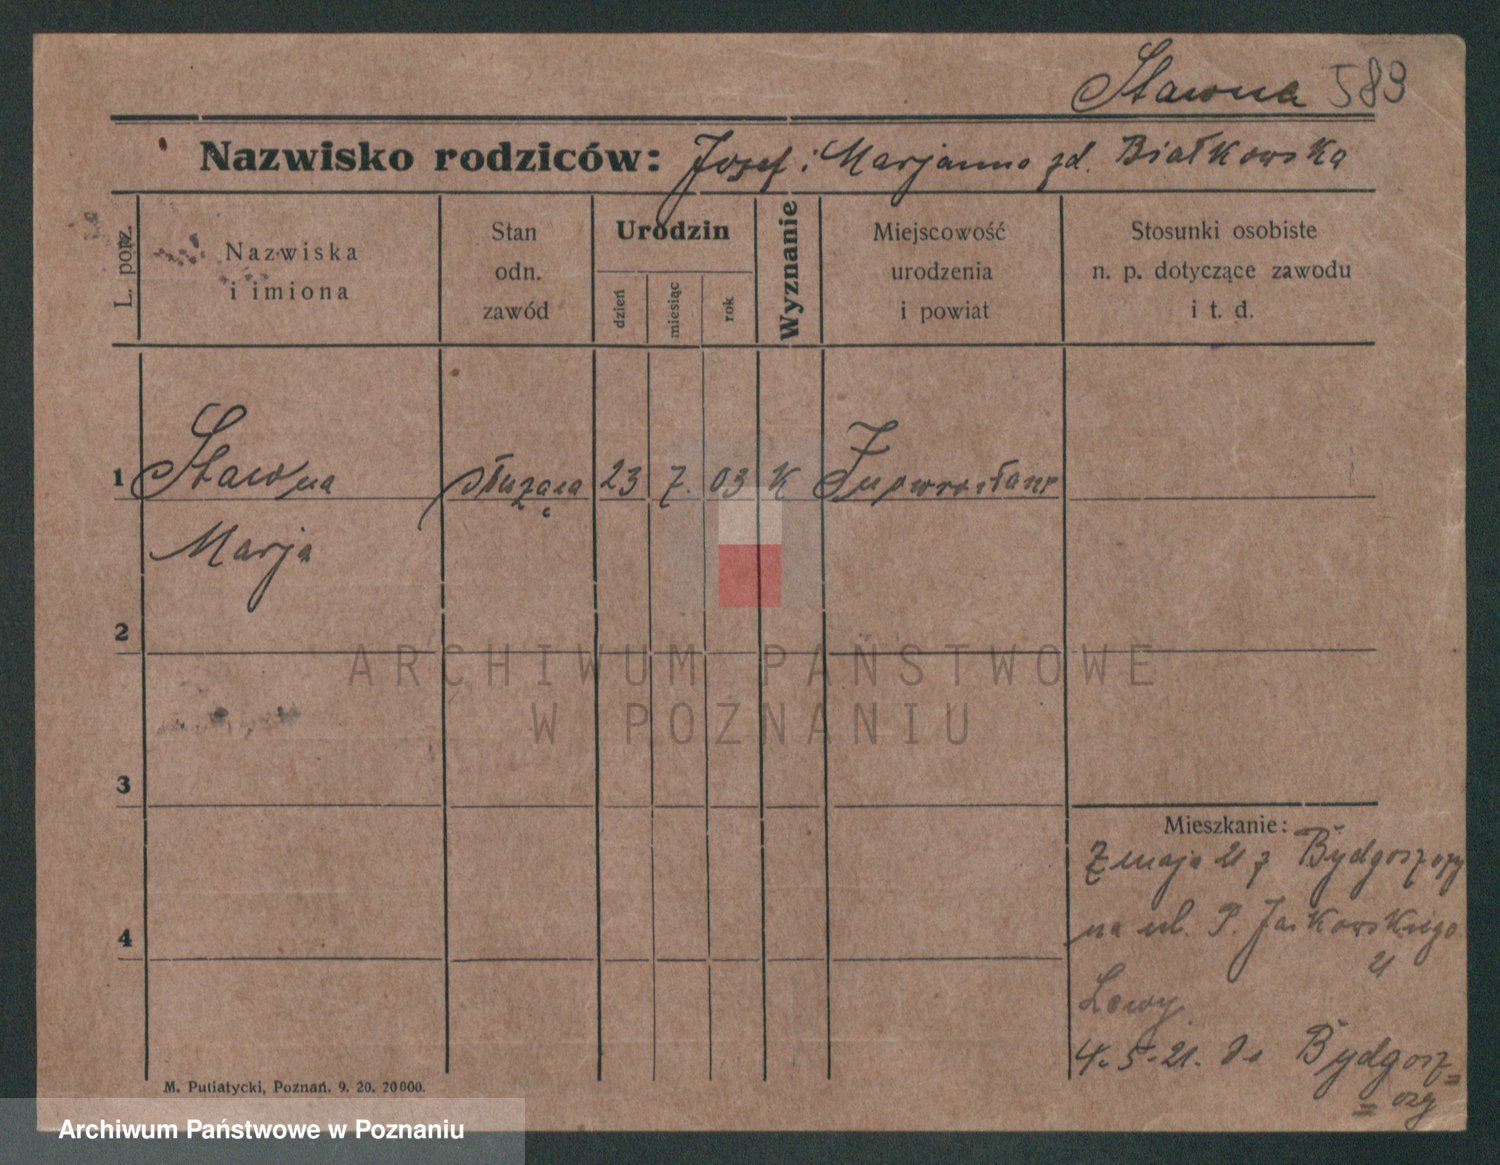 Sławna 589
Nazwisko rodziców: Josef i Marjanna zd. Białkowska
L. porz.
Nazwiska
i imiona
Stan
odn.
zawód
Urodzin
dzień
miesiąc
rok
Wyznanie
Miejscowość
urodzenia
i powiat
Stosunki osobiste
n. p. dotyczące zawodu
i t. d.
1 Sławna służąca 23 7. 03 K Inowrocław
Marja
2
3
4
Mieszkanie:
maja 21 z Bydgoszczy
na ul. P. Jackowskiego
21
4. 5. 21. do Bydgosz=
= czy
M. Putiatycki, Poznań. 9. 20. 20000.
ARCHIWUM PAŃSTWOWE
W POZNANIU
Archiwum Państwowe w Poznaniu